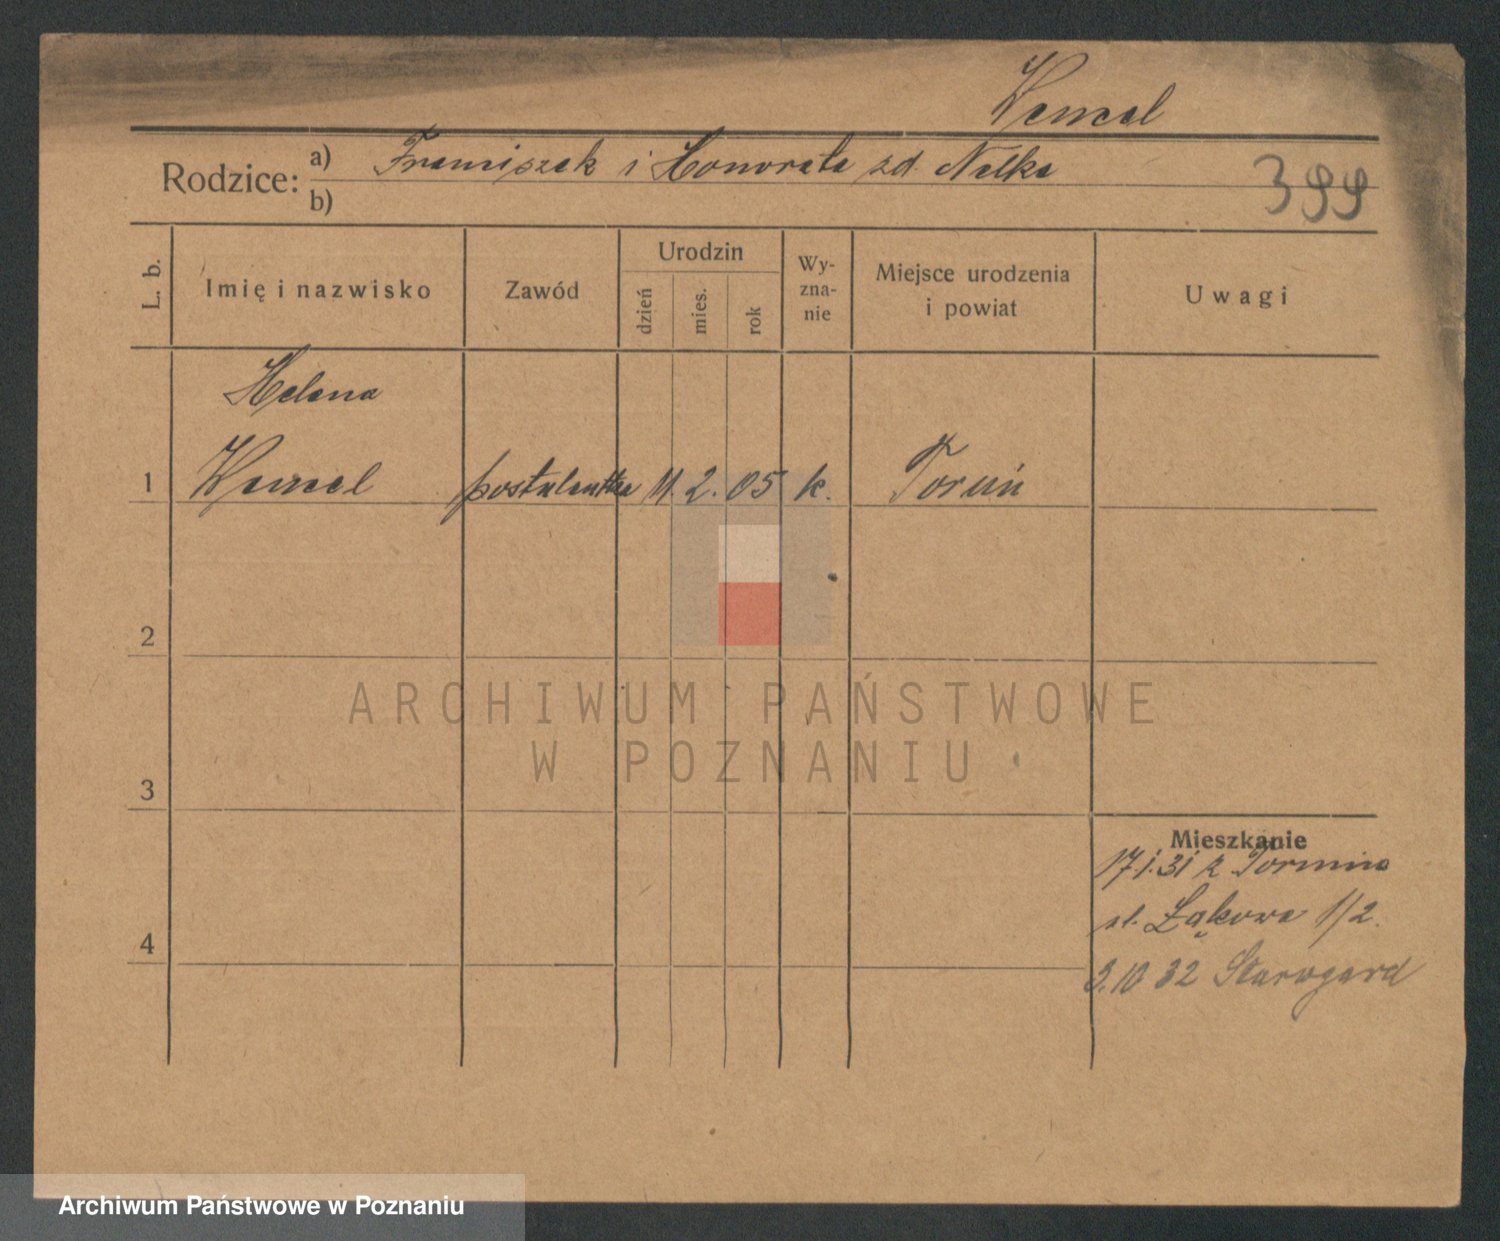 Wencel
Rodzice: a) Franciszek i Honorata zd. Nalka
b)
399
L. b.
Imię i nazwisko
Zawód
Urodzin
dzień
mies.
rok
Wy-
zna-
nie
Miejsce urodzenia
i powiat
Uwagi
Helena
1 Wencel postulantka 11. 2. 05 k. Toruń
2
3
4
Mieszkanie
17.1.31 z Torunia
ul. Łąkowa 1/2.
3.10 32 Starogard
ARCHIWUM PAŃSTWOWE
W POZNANIU
Archiwum Państwowe w Poznaniu